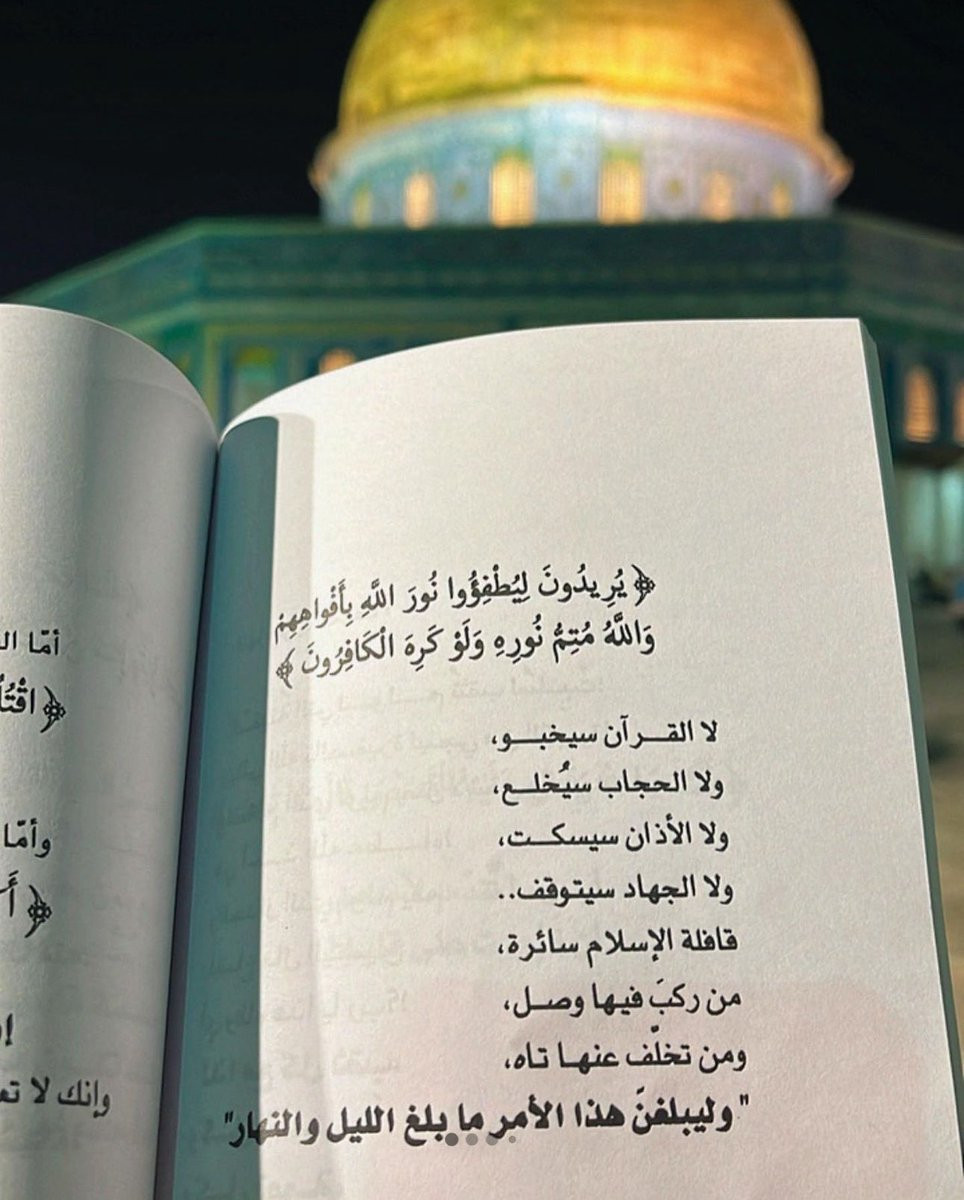 ﴿ يُرِيدُونَ لِيُطْفِؤُوا نُورَ اللَّهِ بِأَفْوَاهِهِمْ
وَاللَّهُ مُتِمُّ نُورِهِ وَلَوْ كَرِهَ الْكَافِرُونَ ﴾
لا القـرآن سيخبـو،
ولا الحجاب سيُخلـع،
ولا الأذان سيسكـت،
ولا الجهاد سيتوقف..
قافلة الإسلام سائرة،
من ركبَ فيها وصـل،
ومن تخلّف عنهـا تاه،
"وليبلغنَّ هذا الأمر ما بلغ الليل والنهار"
أمّا
وأمّا
وإنك لا